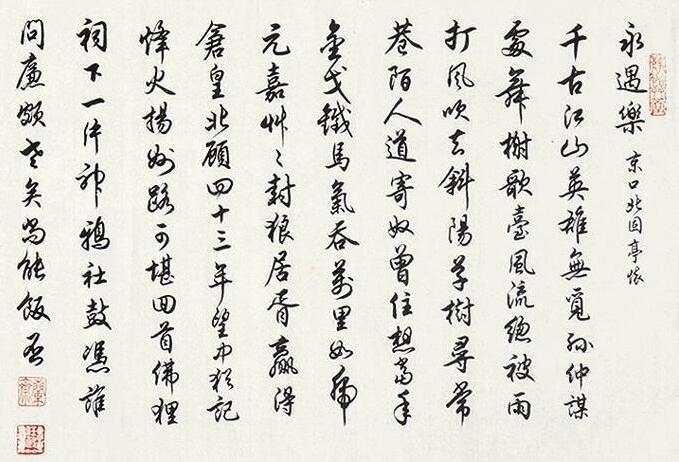 永遇樂 京口北固亭懷
千古江山英雄無覓孫仲謀
處舞榭歌臺風流總被雨
打風吹去斜陽草樹尋常
巷陌人道寄奴曾住想當年
金戈鐵馬氣吞萬里如虎
元嘉艸〻封狼居胥贏得
倉皇北顧四十三年望中猶記
烽火揚州路可堪回首佛狸
祠下一片神鴉社鼓憑誰
問廉頗老矣尚能飯否